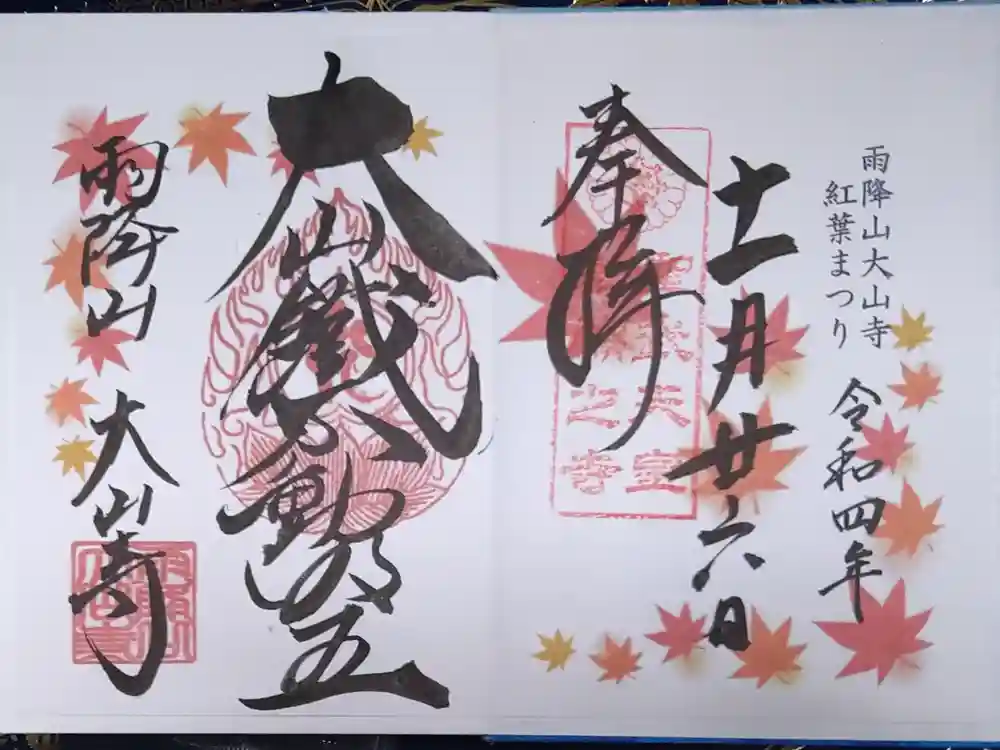 雨降山大山寺
紅葉まつり
令和四年
十一月廿六日
奉拝
天皇
之寺
大山鐵不動明王
雨降山
大山寺